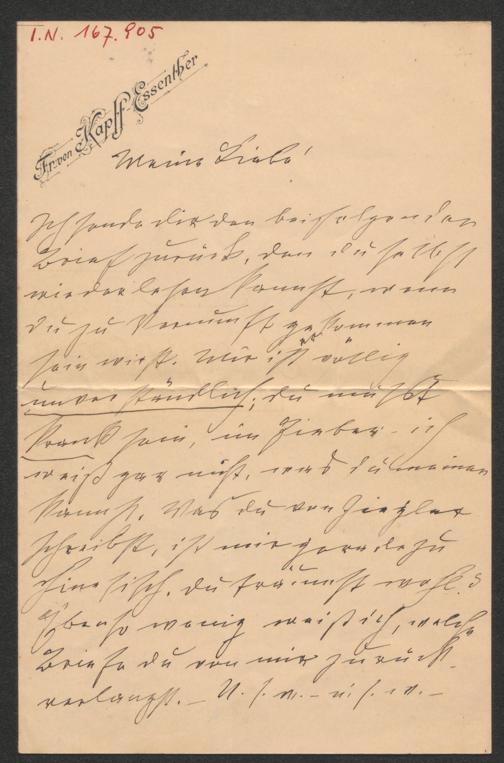 I.N. 167.905
Fr. von Kapff-Essenther
Meine Liebe!
Ich sende dir den beifolgenden
Brief zurück, den du selbst
wiederlesen kannst, wenn
du zu Vernunft gekommen
sein wirst. Mir ist er völlig
unverständlich; du mußt
krank sein, im Fieber – ich
weiß gar nicht, was du meinen
kannst. Was du von Ziegler
schreibst, ist mir geradezu
chinesisch. du träumst wohl?
Ebenso wenig weiß ich, welche
Briefe du von mir zurück-
verlangst. – U. s. w. – u. s. w. –